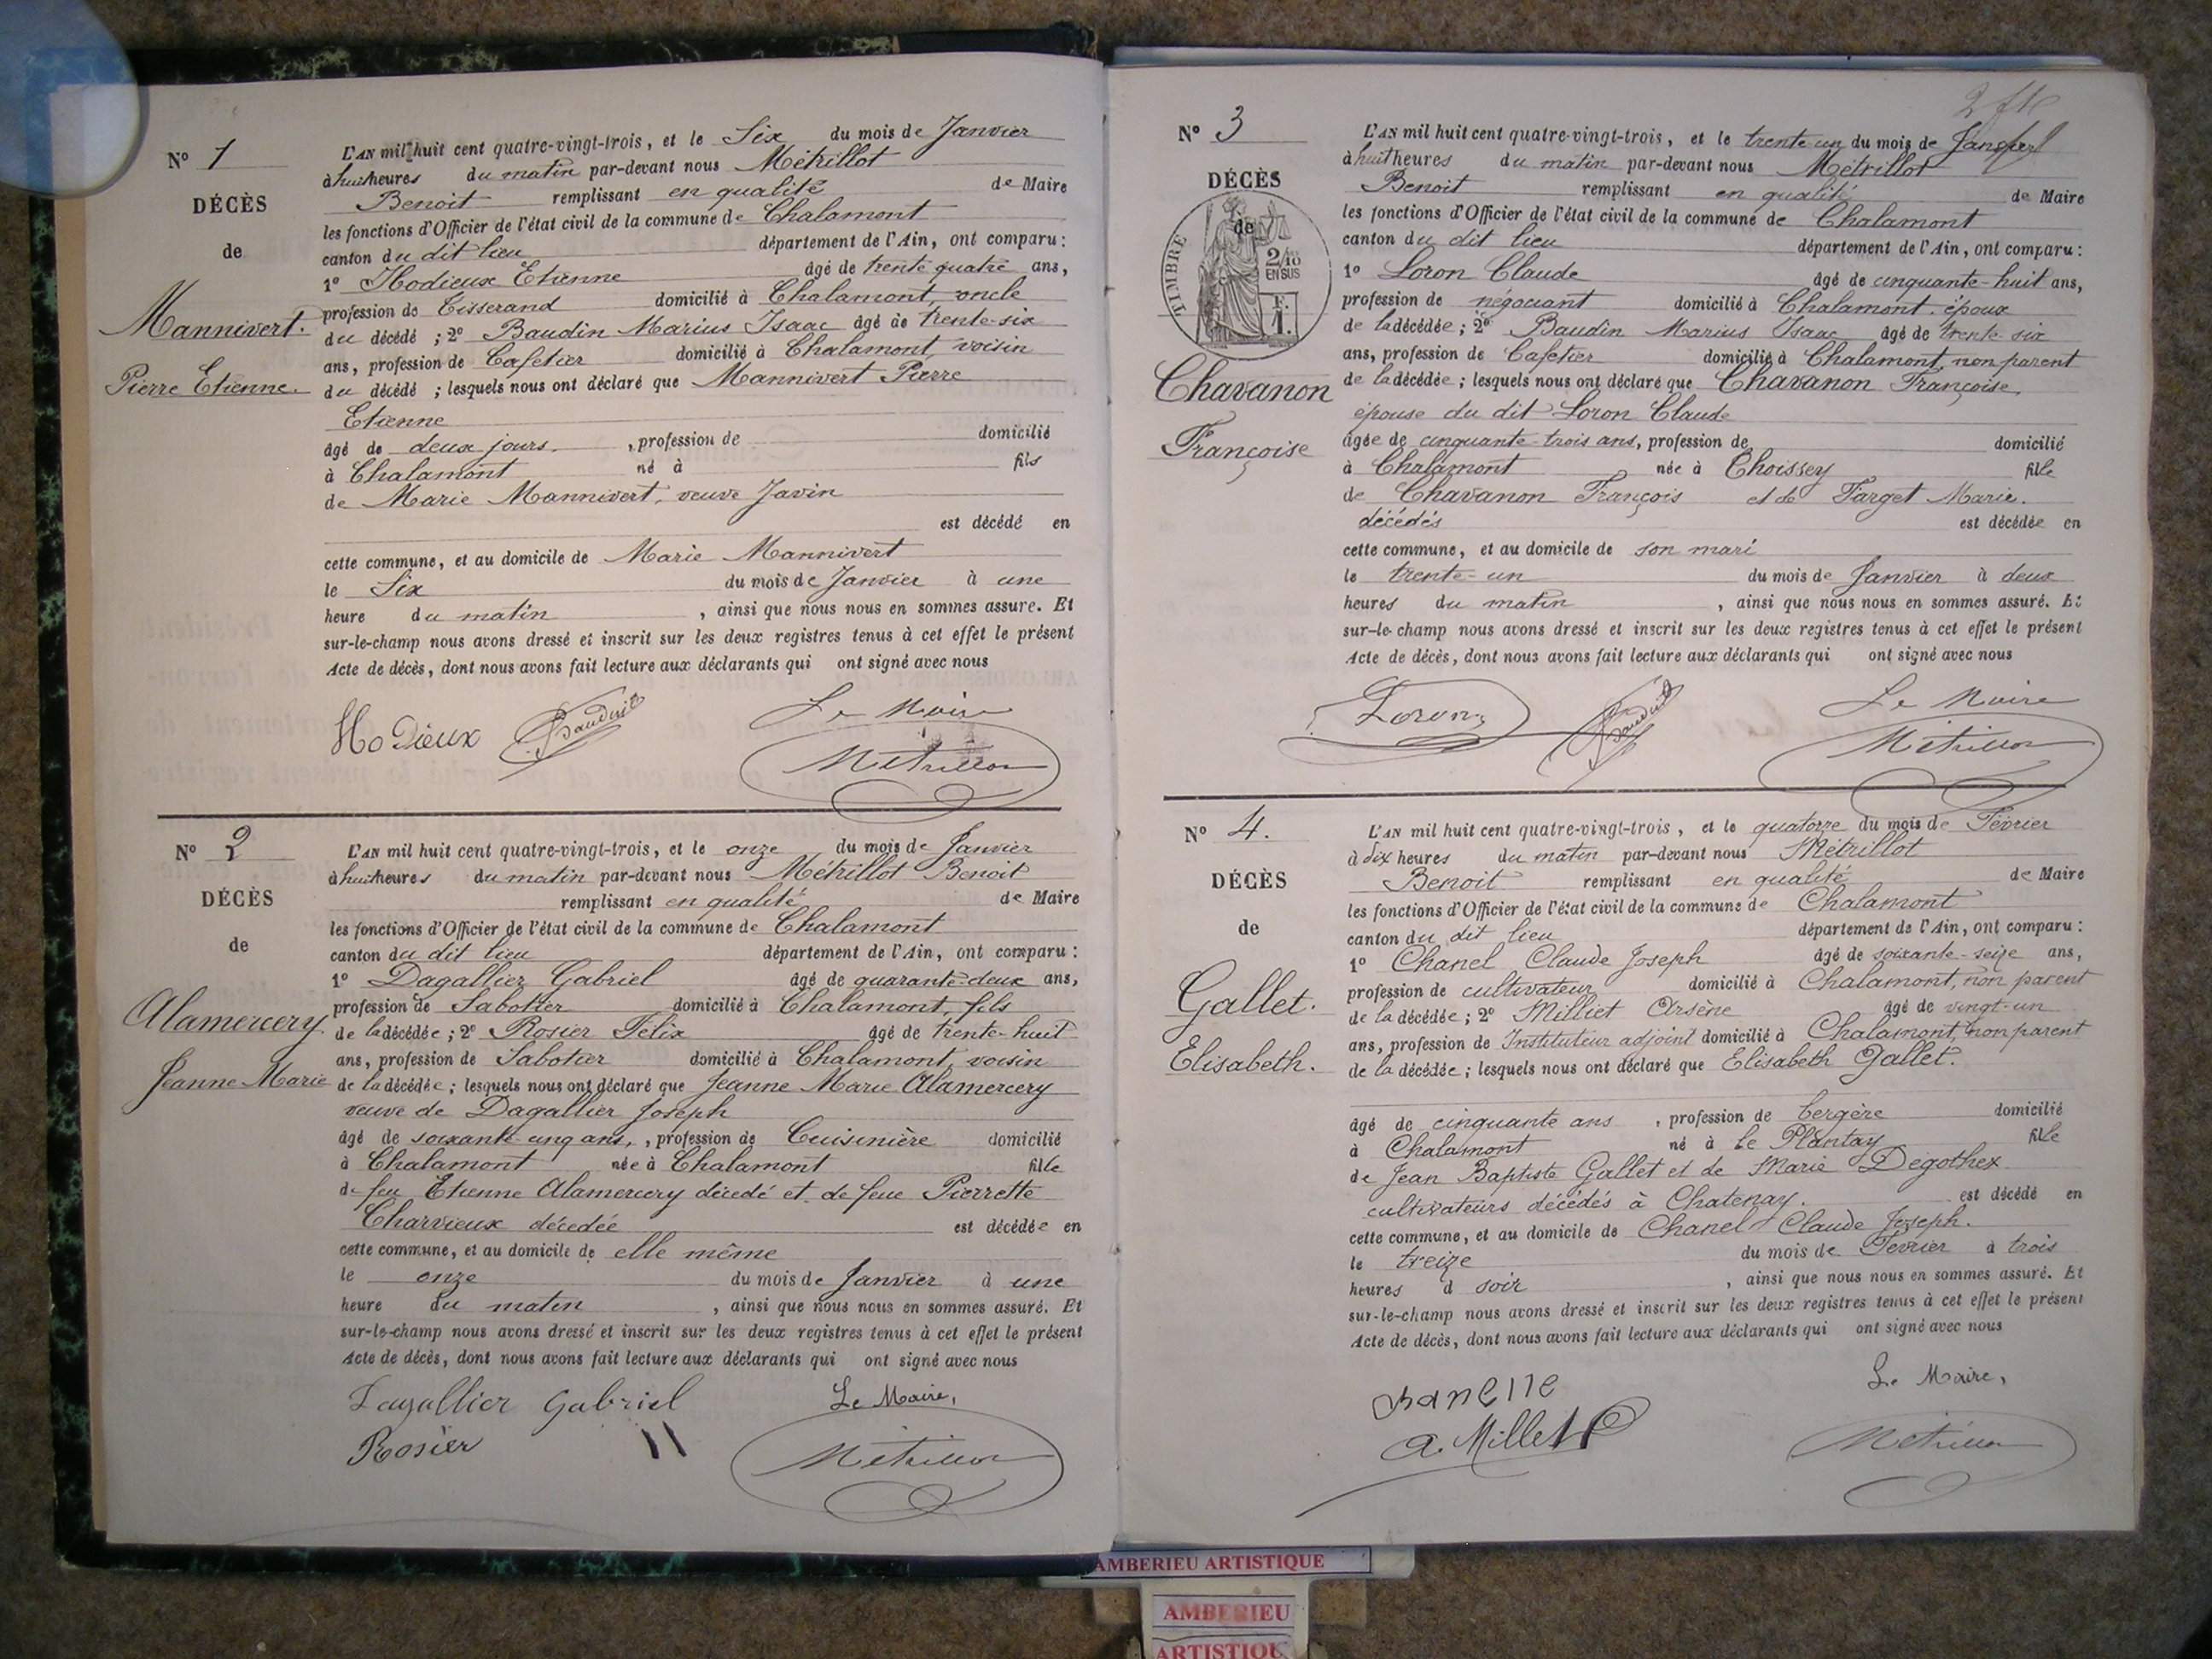 N° 1
DÉCÈS
de
Mannivert.
Pierre Etienne.
L'AN mil huit cent quatre-vingt-trois, et le Six du mois de Janvier
à huit heures du matin par-devant nous Métrillot
Benoit remplissant en qualité de Maire
les fonctions d'Officier de l'état civil de la commune de Chalamont
canton du dit lieu département de l'Ain, ont comparu :
1° Hodieux Etienne âgé de trente quatre ans,
profession de Tisserand domicilié à Chalamont, oncle
du décédé ; 2° Baudin Marius Isaac âgé de trente-six
ans, profession de Cafetier domicilié à Chalamont, voisin
du décédé ; lesquels nous ont déclaré que Mannivert Pierre
Etienne
âgé de deux jours. , profession de domicilié
à Chalamont né à fils
de Marie Mannivert, veuve Javin
est décédé en
cette commune, et au domicile de Marie Mannivert
le Six du mois de Janvier à une
heure du matin , ainsi que nous nous en sommes assuré. Et
sur-le-champ nous avons dressé et inscrit sur les deux registres tenus à cet effet le présent
Acte de décès, dont nous avons fait lecture aux déclarants qui ont signé avec nous
Hodieux Le Maire
Métrillot
N° 2
DÉCÈS
de
Alamercery.
Jeanne Marie
L'AN mil huit cent quatre-vingt-trois, et le onze du mois de Janvier
à huit heures du matin par-devant nous Métrillot Benoit
remplissant en qualité de Maire
les fonctions d'Officier de l'état civil de la commune de Chalamont
canton du dit lieu département de l'Ain, ont comparu :
1° Dagallier Gabriel âgé de quarante-deux ans,
profession de Sabotier domicilié à Chalamont, fils
de la décédée ; 2° Rosier Félix âgé de trente-huit
ans, profession de Sabotier domicilié à Chalamont, voisin
de la décédée ; lesquels nous ont déclaré que Jeanne Marie Alamercery
veuve de Dagallier Joseph
âgé de soixante-cinq ans, , profession de Cuisinière domicilié
à Chalamont née à Chalamont fille
de feu Etienne Alamercery décedé et de feue Pierrette
Charvieux décedée est décédée en
cette commune, et au domicile de elle même
le onze du mois de Janvier à une
heure du matin , ainsi que nous nous en sommes assuré. Et
sur-le-champ nous avons dressé et inscrit sur les deux registres tenus à cet effet le présent
Acte de décès, dont nous avons fait lecture aux déclarants qui ont signé avec nous
Dagallier Gabriel Le Maire,
Rosier Métrillot
N° 3
DÉCÈS
de
TIMBRE
2/10
EN SUS
1 F.
Chavanon
Françoise
L'AN mil huit cent quatre-vingt-trois, et le trente un du mois de Janvier
à huit heures du matin par-devant nous Métrillot
Benoit remplissant en qualité de Maire
les fonctions d'Officier de l'état civil de la commune de Chalamont
canton du dit lieu département de l'Ain, ont comparu :
1° Loron Claude âgé de cinquante-huit ans,
profession de négociant domicilié à Chalamont, époux
de la décédée ; 2° Baudin Marius Isaac âgé de trente-six
ans, profession de Cafetier domicilié à Chalamont, non parent
de la décédée ; lesquels nous ont déclaré que Chavanon Françoise,
épouse du dit Loron Claude
âgée de cinquante-trois ans, profession de domicilié
à Chalamont née à Choissey fille
de Chavanon François et de Target Marie.
décédés est décédée en
cette commune, et au domicile de son mari
le trente-un du mois de Janvier à deux
heures du matin , ainsi que nous nous en sommes assuré. Et
sur-le-champ nous avons dressé et inscrit sur les deux registres tenus à cet effet le présent
Acte de décès, dont nous avons fait lecture aux déclarants qui ont signé avec nous
Loron Le Maire
Métrillot
N° 4.
DÉCÈS
de
Gallet.
Elisabeth.
L'AN mil huit cent quatre-vingt-trois, et le quatorze du mois de Février
à dix heures du matin par-devant nous Métrillot
Benoit remplissant en qualité de Maire
les fonctions d'Officier de l'état civil de la commune de Chalamont
canton du dit lieu département de l'Ain, ont comparu :
1° Chanel Claude Joseph âgé de soixante-seize ans,
profession de cultivateur domicilié à Chalamont, non parent
de la décédée ; 2° Milliet Arsène âgé de vingt-un
ans, profession de Instituteur adjoint domicilié à Chalamont, non parent
de la décédée ; lesquels nous ont déclaré que Elisabeth Gallet.
âgé de cinquante ans , profession de bergère domicilié
à Chalamont né à Le Plantay fille
de Jean Baptiste Gallet et de Marie Degothex
cultivateurs décédés à Chatenay. est décédé en
cette commune, et au domicile de Chanel Claude Joseph.
le treize du mois de Fevrier à trois
heures d soir , ainsi que nous nous en sommes assuré. Et
sur-le-champ nous avons dressé et inscrit sur les deux registres tenus à cet effet le présent
Acte de décès, dont nous avons fait lecture aux déclarants qui ont signé avec nous
Le Maire,
A. Milliet
Métrillot
AMBERIEU ARTISTIQUE
AMBERIEU
ARTISTIQUE